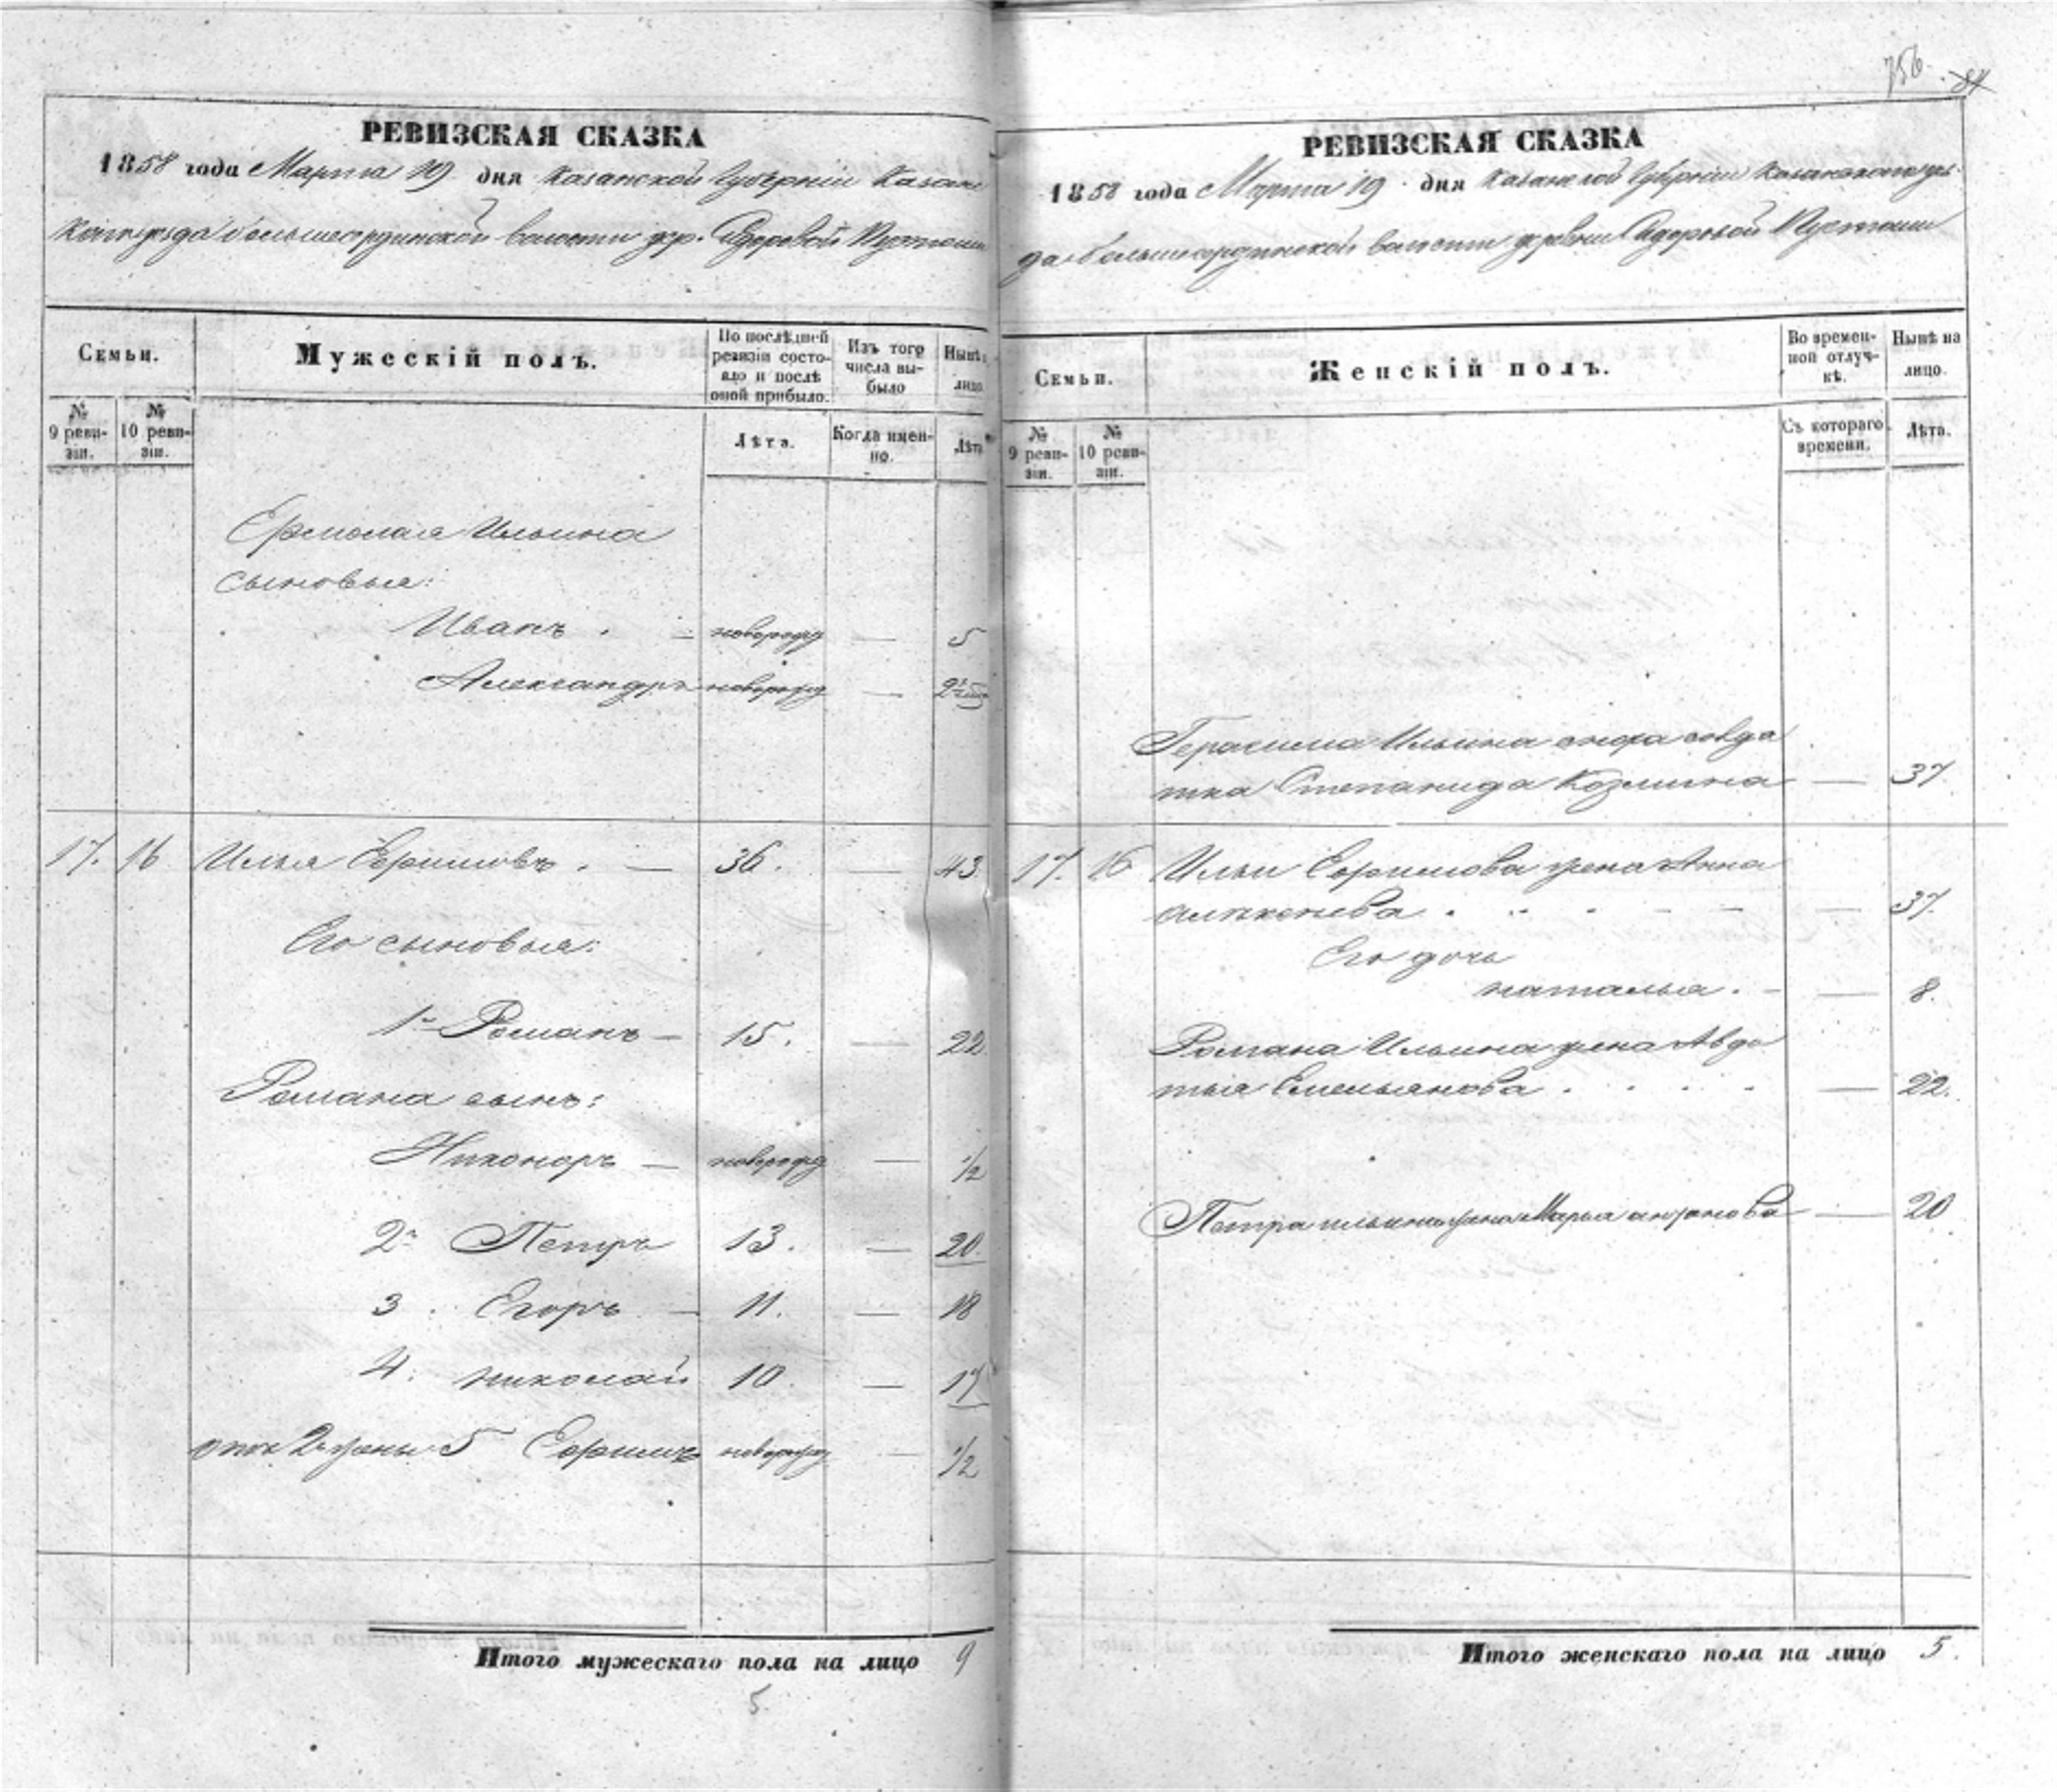 756. 84
РЕВИЗСКАЯ СКАЗКА
1858 года Марта 19 дня Казанской Губерніи Казанс
каго уезда большеординской волости дер. Сидоровой Пустоши
Семьи.
Мужескій полъ.
По послѣдней ревизіи состояло и послѣ оной прибыло.
Изъ того числа выбыло
Нынѣ лицо
№ 9 ревизіи.
№ 10 ревизіи.
Лѣта.
Когда именно.
Лѣта
Ермолая Ильина
сыновья:
Иванъ . новорожд — 5
Александръ новорожд —
17. 16 Илья Ефимовъ . — 36. — 43.
Его сыновья:
1й Романъ — 15. — 22
Романа сынъ:
Никоноръ — новорожд — 1/2
2й Петръ 13. — 20.
3. Егоръ — 11. — 18
4. николай 10 — 17
отъ 2й жены 5 Ефимъ новорожд — 1/2
Итого мужескаго пола на лицо 9
5.
РЕВИЗСКАЯ СКАЗКА
1858 года Марта 19 дня Казанской Губерніи Казанскаго уез
да большеординской волости деревни Сидоровой Пустоши
Семьи.
Женскій полъ.
Во временной отлучкѣ.
Нынѣ на лицо.
№ 9 ревизіи.
№ 10 ревизіи.
Съ котораго времени.
Лѣта.
Герасима Ильина сноха солда
тка Степанида Козмина — 37.
17. 16 Ильи Ефимова жена Анна
алексеева . . . — — — 37.
Его дочь
наталья . — — 8.
Романа Ильина жена Авдо
тья Емельянова . . . . — 22.
Петра ильина жена Марья — 20
Итого женскаго пола на лицо 5.